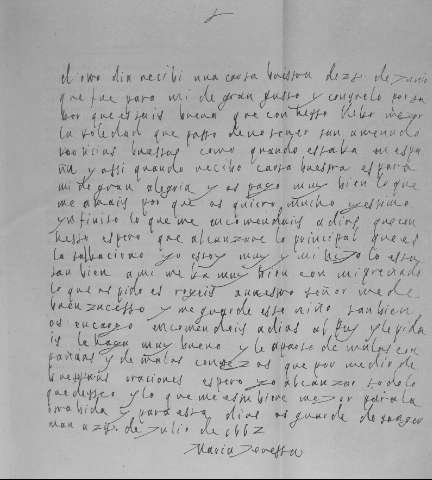 el otro dia recibi una carta buestra de 25 de Junio
que fue para mi de gran gusto y consuelo por sa
ber que estais buena que con hesso llebo mejor
la soledad que passo de no tener tan amenudo
noticias buestras como quando estaba en espa
ña y assi quando recibo carta buestra es para
mi de gran alegria y os pago muy bien lo que
me amais por que os quiero mucho y estimo
ynfinito lo que me encomendais a dios que con
hesso espero que alcanzare lo principal que es
la salbacion yo estoy muy y mi lo esta
tan bien a mi me ba muy bien con mi preñado
lo que os pido es rogueis a nuestro señor me de
buen zucesso y me guarde este niño tanbien
os encargo encomendeis a dios al Rey y le pida
is le haga muy bueno y le aparte de malas con
pañias y de malos consejos que por medio de
buestras oraciones espero yo alcanzar todo lo
que desseo y lo que me estubiere mejor para la
otra bida y para esta dios os guarde de
a 25 de Julio de 1662
Maria Teressa